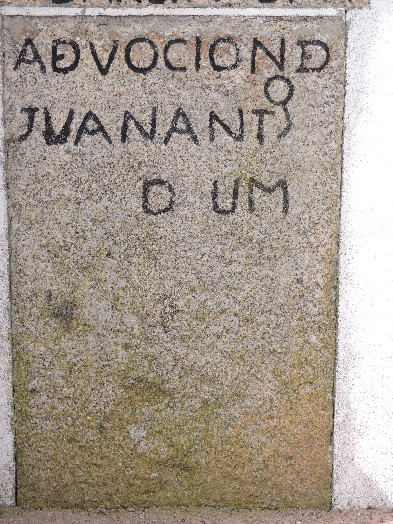 ADVOCIOND
JUANANTº
D UM